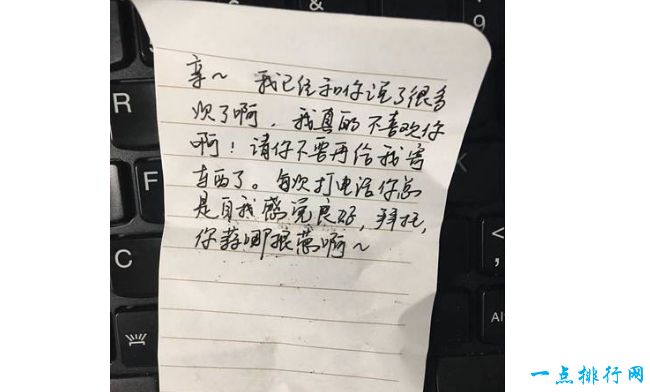 亲～ 我已经和你说了很多
次了啊，我真的不喜欢你
啊！请你不要再给我寄
东西了。每次打电话你总
是自我感觉良好，拜托，
你算哪根葱啊～
R
F
C
&
9
K
<
,
Alt
一点排行网